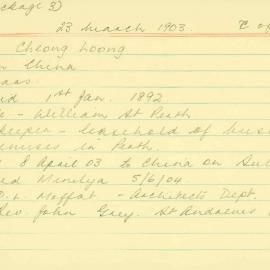 ckage 3)
23 March 1903. C of
Cheong Loong
China
1st Jan. 1892
William St Perth
keeper - leasehold of busi
emises in Perth.
8 April 03 to China on Sul
ed Minilya 5/6/04.
Moffat - Architects Dept.
Rev. John Grey. St Andrews